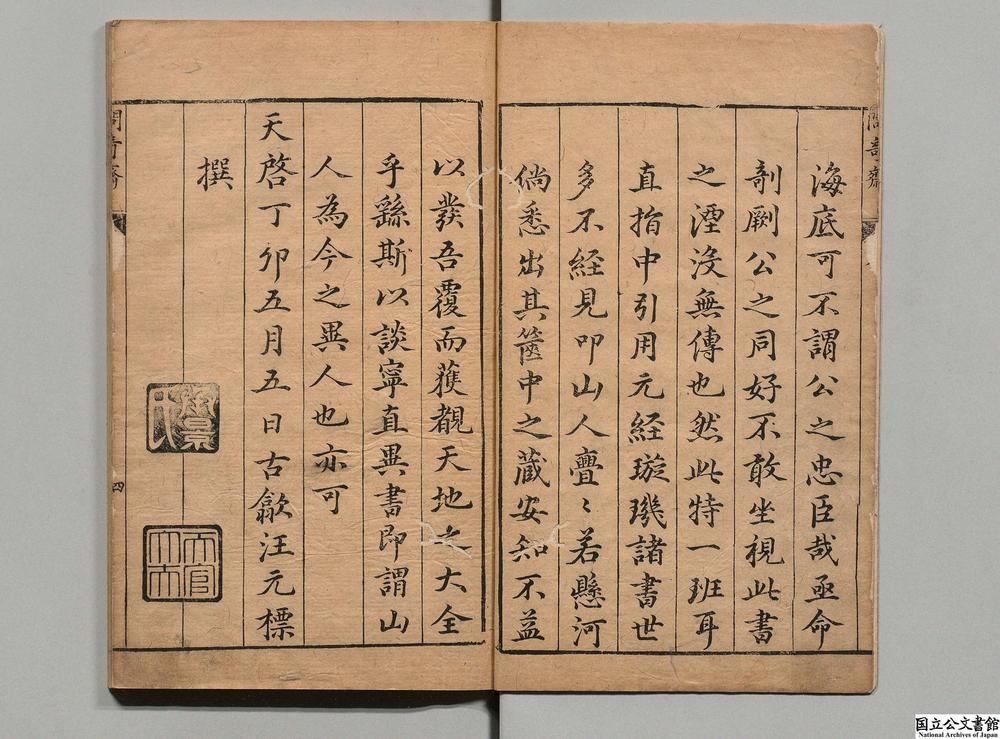 海底可不謂公之忠臣哉亟命
剞劂公之同好不敢坐視此書
之湮沒無傳也然此特一班耳
直指中引用元経璇璣諸書世
多不経見叩山人亹〻若懸河
倘悉出其篋中之蔵安知不益
以發吾覆而獲覩天地之大全
乎繇斯以談寧直異書即謂山
人為今之異人也亦可
天啓丁卯五月五日古歙汪元標
撰
四
国立公文書館
National Archives of Japan